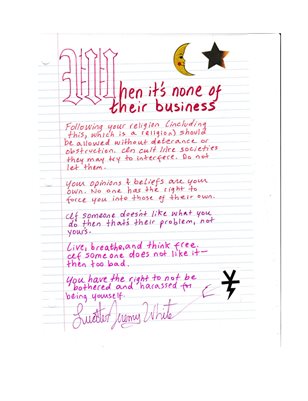 When it's none of
their business
Following your religion (including
this, which is a religion) should
be allowed without deterance or
obstruction. In cult like societies
they may try to interfere. Do not
let them.
Your opinions & beliefs are your
own. No one has the right to
force you into those of their own.
If someone doesn't like what you
do then that's their problem, not
yours.
Live, breathe, and think free.
If someone does not like it—
then too bad.
You have the right to not be
bothered and harassed for
being yourself.
Jeremy White